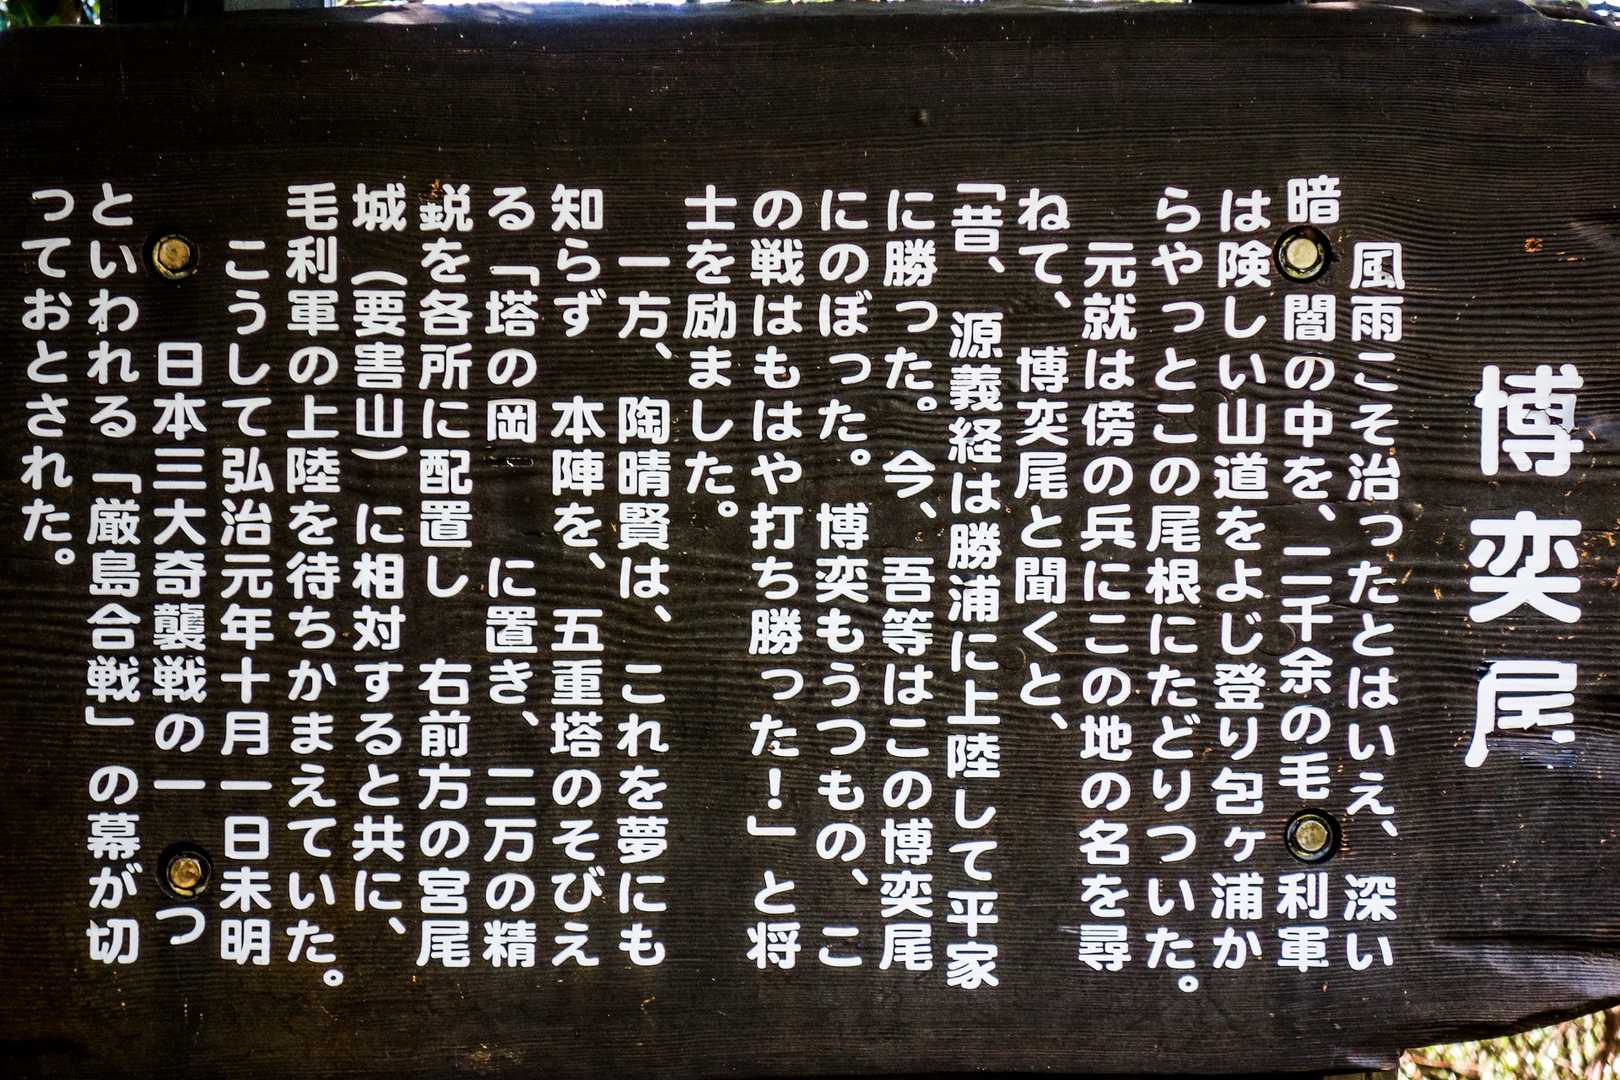 博奕尾
風雨こそ治ったとはいえ、深い
暗闇の中を、二千余の毛利軍
は険しい山道をよじ登り包ヶ浦か
らやっとこの尾根にたどりついた。
元就は傍の兵にこの地の名を尋
ねて、博奕尾と聞くと、
「昔、源義経は勝浦に上陸して平家
に勝った。今、吾等はこの博奕尾
にのぼった。博奕もうつもの、こ
の戦はもはや打ち勝った!」と将
士を励ました。
一方、陶晴賢は、これを夢にも
知らず本陣を、五重塔のそびえ
る「塔の岡」に置き、二万の精
鋭を各所に配置し右前方の宮尾
城(要害山)に相対すると共に、
毛利軍の上陸を待ちかまえていた。
こうして弘治元年十月一日未明
日本三大奇襲戦の一つ
といわれる「厳島合戦」の幕が切
っておとされた。